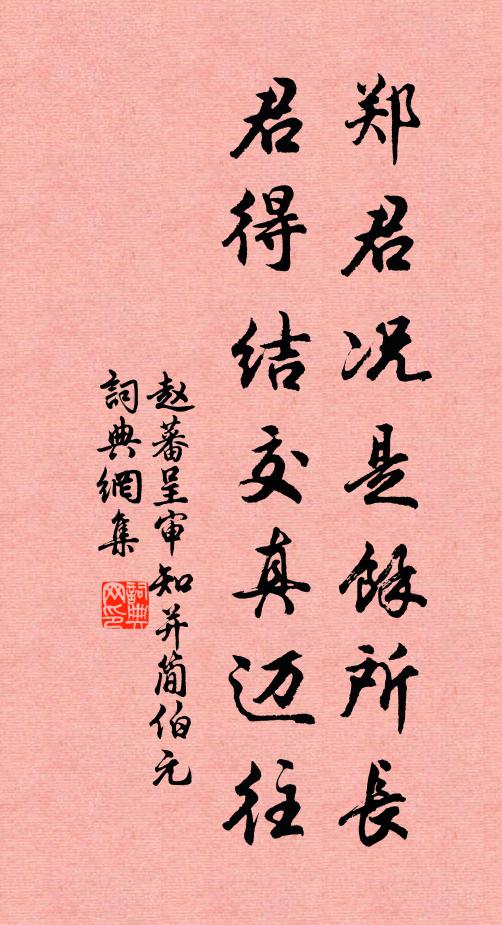 郑君况是餘所長
君得结交真迈往
赵蕃呈审知并简伯元
詞典網集
詞典网印